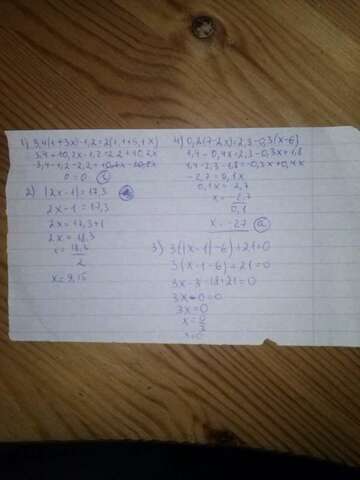 1) 3,4(1+3x)-1,2=2(1,1+5,1x)
3,4+10,2x-1,2=2,2+10,2x
3,4-1,2-2,2=10,2x-10,2x
0=0
2) |2x-1|=17,3
2x-1=17,3
2x=17,3+1
2x=18,3
x=18,3/2
x=9,15
4) 0,2(7-2x)=2,3-0,3(x-6)
1,4-0,4x=2,3-0,3x+1,8
1,4-2,3-1,8=-0,3x+0,4x
-2,7=0,1x
0,1x=-2,7
x=-2,7/0,1
x=-27 a
3) 3(|x-1|-6)+21=0
3(x-1-6)+21=0
3x-3-18+21=0
3x-0=0
3x=0
x=0/3
x=0